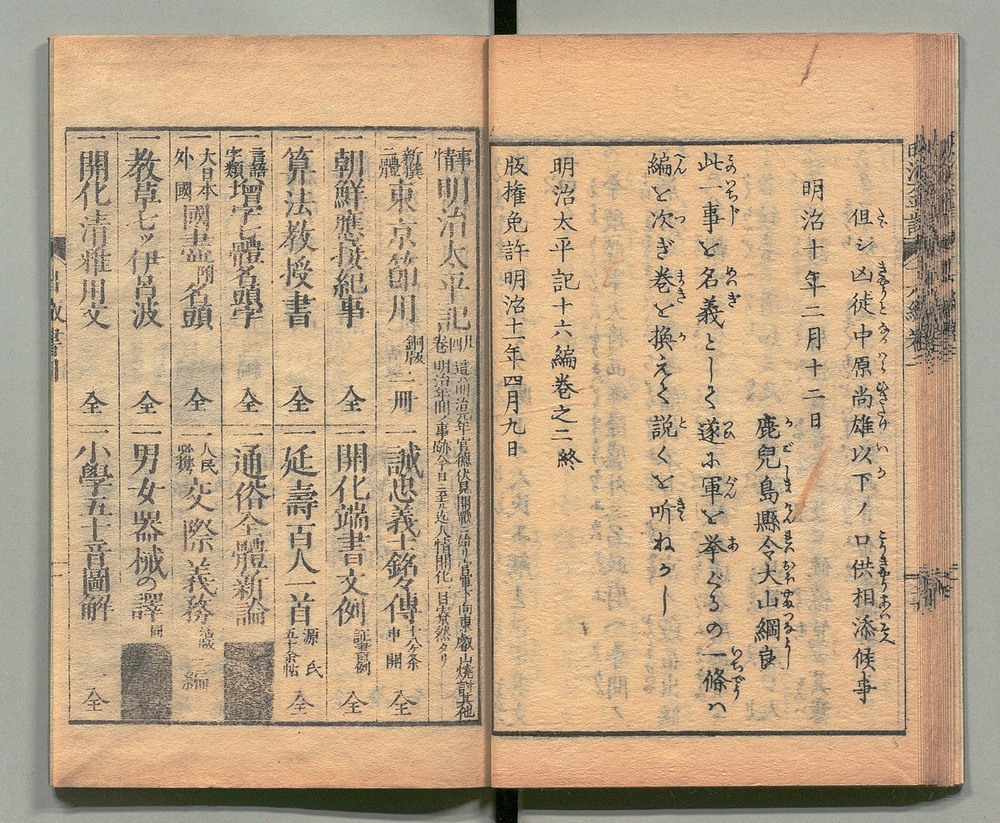 但シ凶徒中原尚雄以下ノ口供相添候事
明治十年二月十二日
鹿兒島縣令大山綱良
此一事を名義として遂に軍を挙ぐるの一條ハ
編を次ぎ巻を換えて説くを听ねかし
明治太平記十六編巻之二終
版権免許明治十一年四月九日
事情明治太平記
一新撰二體東京節用 銅版二冊
一誠忠義士銘々傳 十八ケ条申開 全
一朝鮮應接紀事 全
一開化端書文例 証書類例 全
一算法教授書 全
一延壽百人一首 源氏五十余帖 全
一言語字類增字七體名頭字 全
一通俗全體新論
一大日本外國國盡名頭 全
一人民必携交際義務 三編
一教草七ッ伊呂波 全
一男女器械の譯 同
一開化清雅用文 全
一小學五十音圖解 全